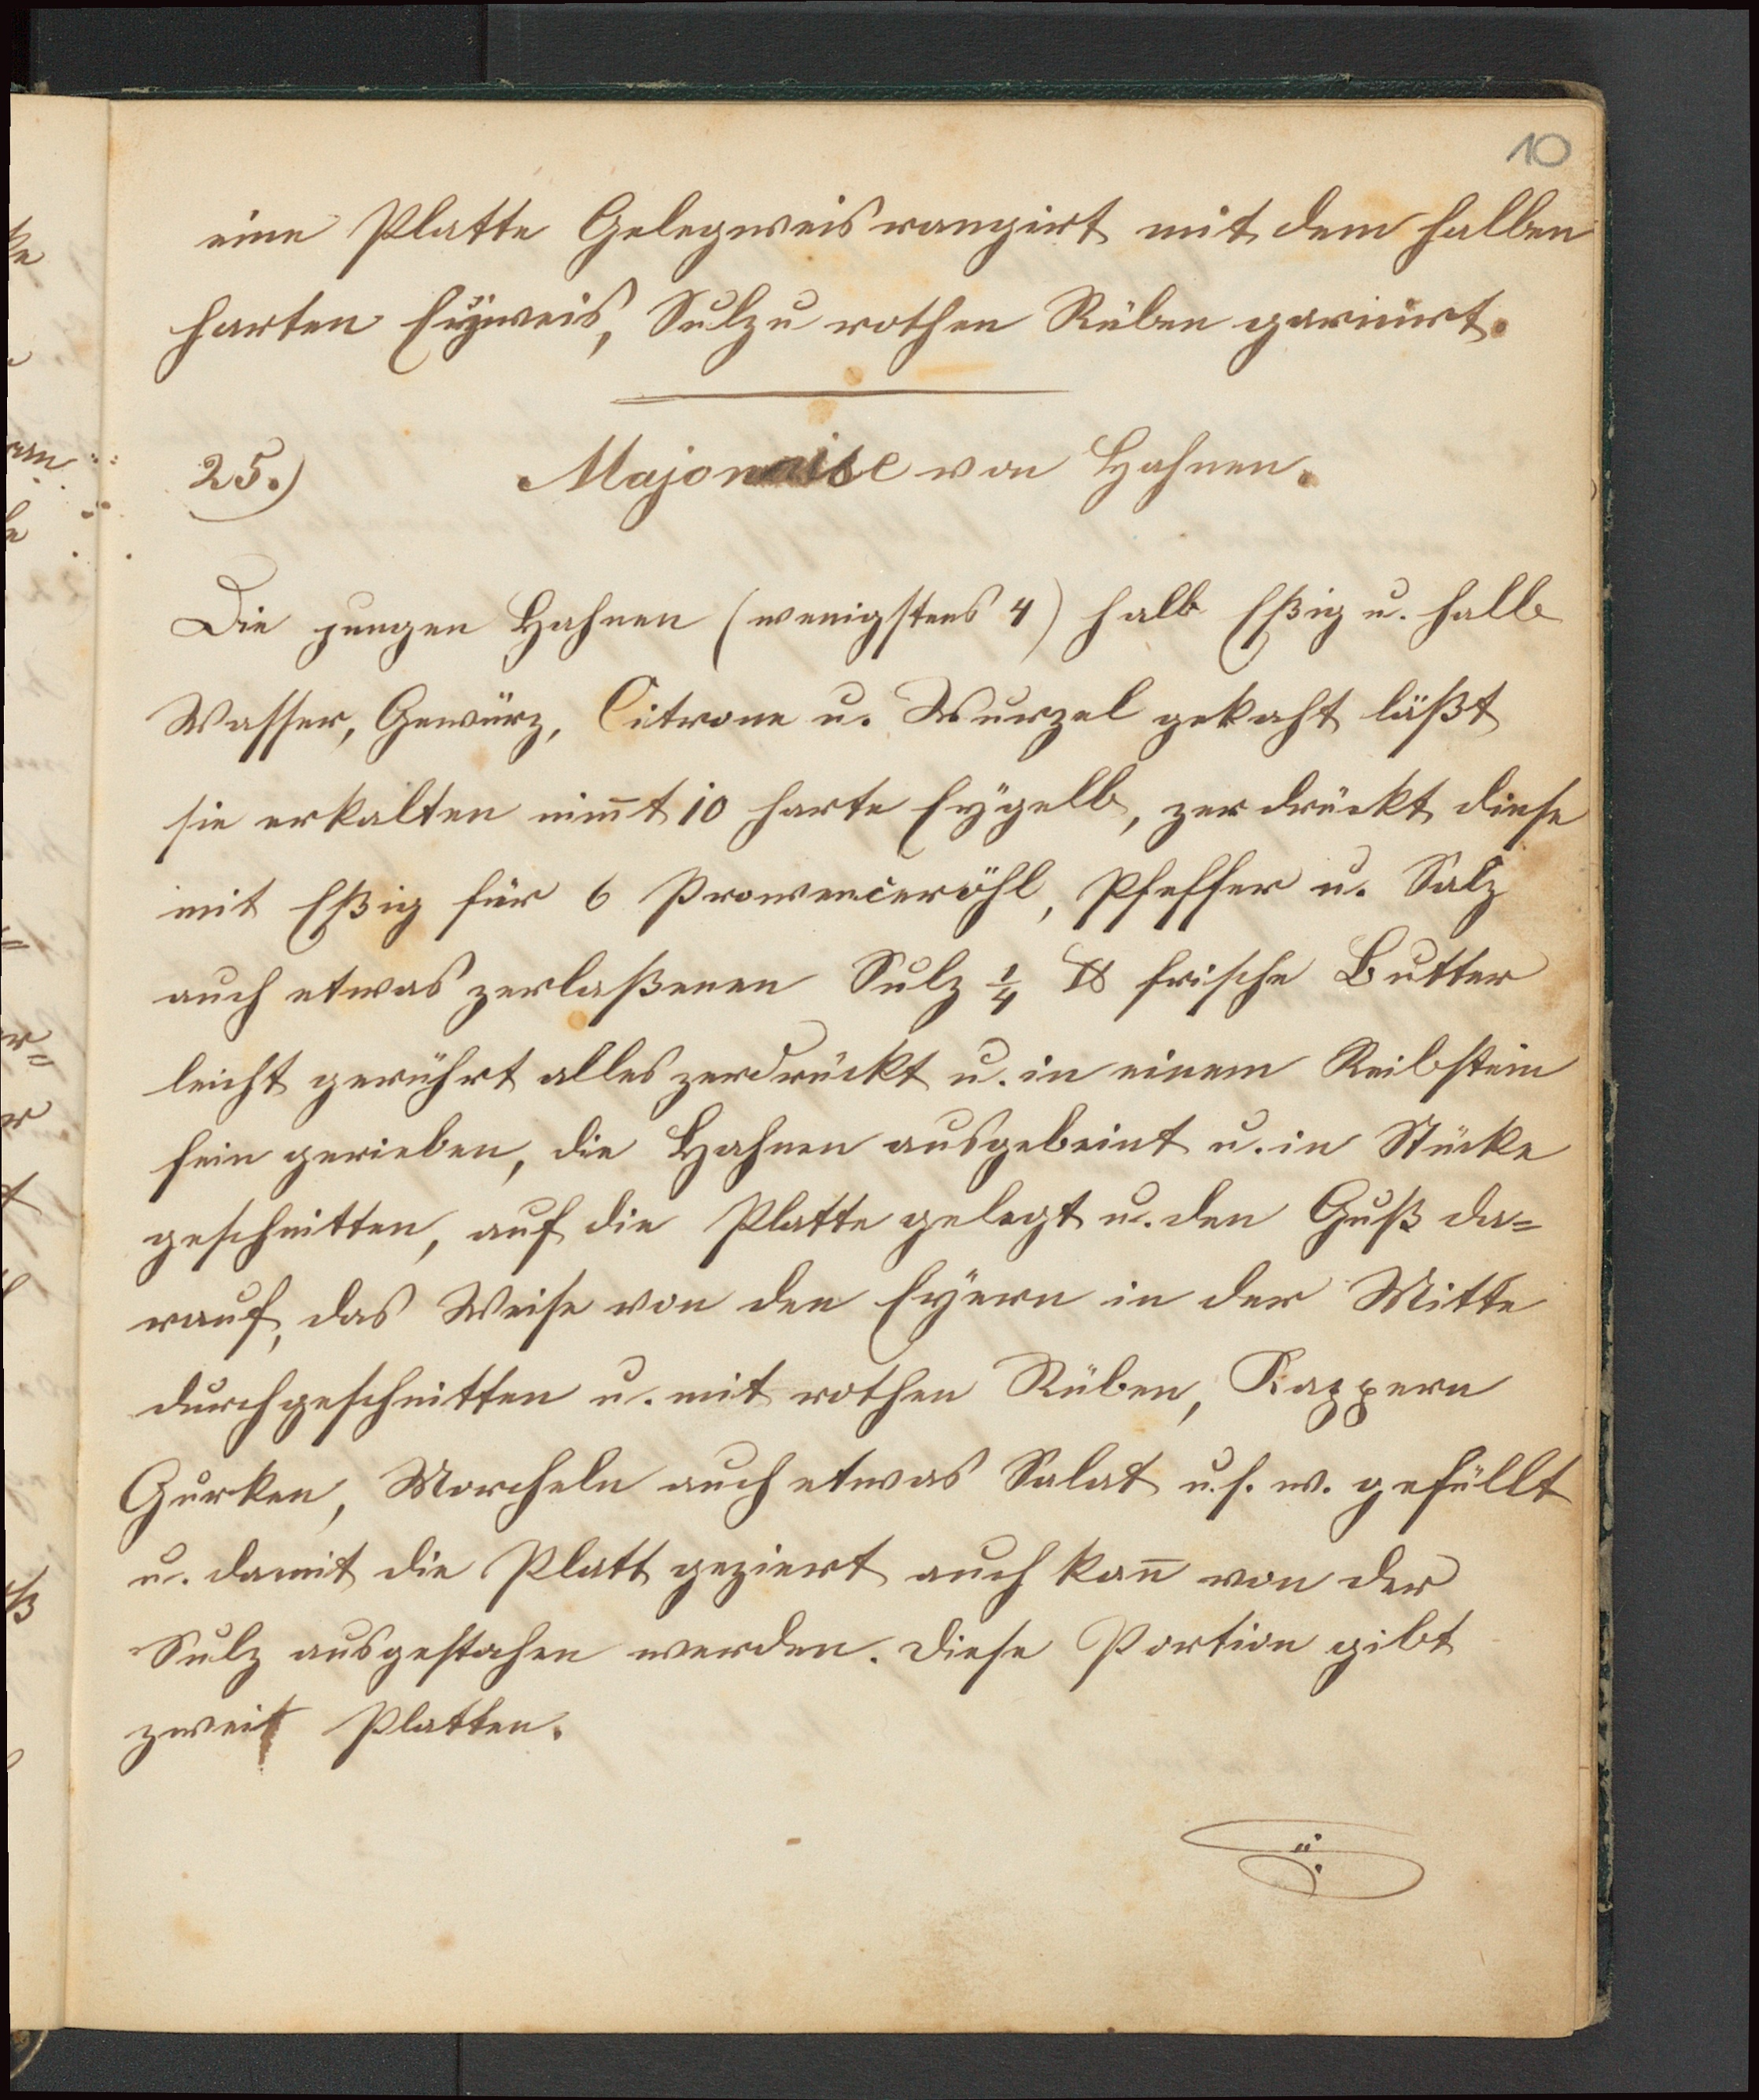 10
eine Platte Gelegweis rangirt mit dem halben
harten Eÿweis, Sulz u rothen Rüben garniert.
25.) Majonaise von Hahnen.
Die jungen Hahnen (wenigstens 4) halb Eßig u. halb
Wasser, Gewürz, Citrone u. Wurzel gekocht läßt
sie erkalten nim̄t 10 harte Eÿgelb, zerdrückt diese
mit Eßig für 6 Prowenceröhl, Pfeffer u. Salz
auch etwas zerlaßenen Sulz ¼ ℔ frische Butter
leicht gerührt alles zerdrückt u. in einem Reibstein
fein gerieben, die Hahnen ausgebeint u. in Stücke
geschnitten, auf die Platte gelegt u. den Guß da=
rauf, das Weise von den Eÿern in der Mitte
durchgeschnitten u. mit rothen Rüben, Kappern
Gurken, Morcheln auch etwas Salat u. s. w. gefüllt
u. damit die Platt geziert auch kan̄ von der
Sulz ausgestochen werden. Diese Portion gibt
zwei Platten.